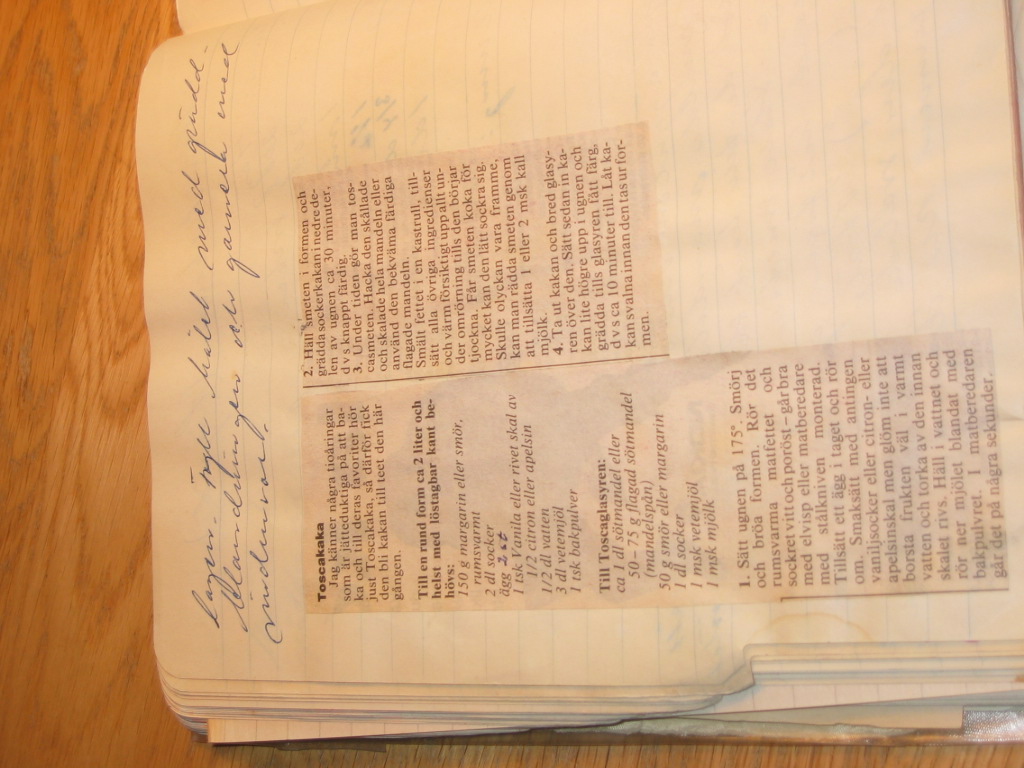 lager. rör hålet med grädd-
blandningen och garnera med
vindruvor.
Toscakaka
Jag känner några tioåringar
som är jätteduktiga på att ba-
ka och till deras favoriter hör
just Toscakaka, så därför fick
den bli kakan till teet den här
gången.
Till en rund form ca 2 liter och
helst med löstagbar kant be-
hövs:
150 g margarin eller smör,
rumsvarmt
2 dl socker
ägg 2 st
1 tsk Vanilj eller rivet skal av
1/2 citron eller apelsin
1/2 dl vatten
3 dl vetemjöl
1 tsk bakpulver
Till Toscaglasyren:
ca 1 dl sötmandel eller
50–75 g flagad sötmandel
(mandelspån)
50 g smör eller margarin
1 dl socker
1 msk vetemjöl
1 msk mjölk
1. Sätt ugnen på 175°. Smörj
och bröa formen. Rör det
rumsvarma matfettet och
sockret vitt och poröst – går bra
med elvisp eller matberedare
med stålkniven monterad.
Tillsätt ett ägg i taget och rör
om. Smaksätt med antingen
vaniljsocker eller citron- eller
apelsinskal men glöm inte att
borsta frukten väl i varmt
vatten och torka av den innan
skalet rivs. Häll i vattnet och
rör ner mjölet blandat med
bakpulvret. I matberedaren
går det på några sekunder.
2. Häll smeten i formen och
grädda sockerkakan i nedre de-
len av ugnen ca 30 minuter,
d v s knappt färdig.
3. Under tiden gör man tos-
casmeten. Hacka den skållade
och skalade hela mandeln eller
använd den bekväma färdiga
flagade mandeln.
Smält fettet i en kastrull, till-
sätt alla övriga ingredienser
och värm försiktigt upp allt un-
der omrörning tills den börjar
tjockna. Får smeten koka för
mycket kan den lätt sockra sig.
Skulle olyckan vara framme,
kan man rädda smeten genom
att tillsätta 1 eller 2 msk kall
mjölk.
4. Ta ut kakan och bred glasy-
ren över den. Sätt sedan in ka-
kan lite högre upp i ugnen och
grädda tills glasyren fått färg,
d v s ca 10 minuter till. Låt ka-
kan svalna innan den tas ur for-
men.